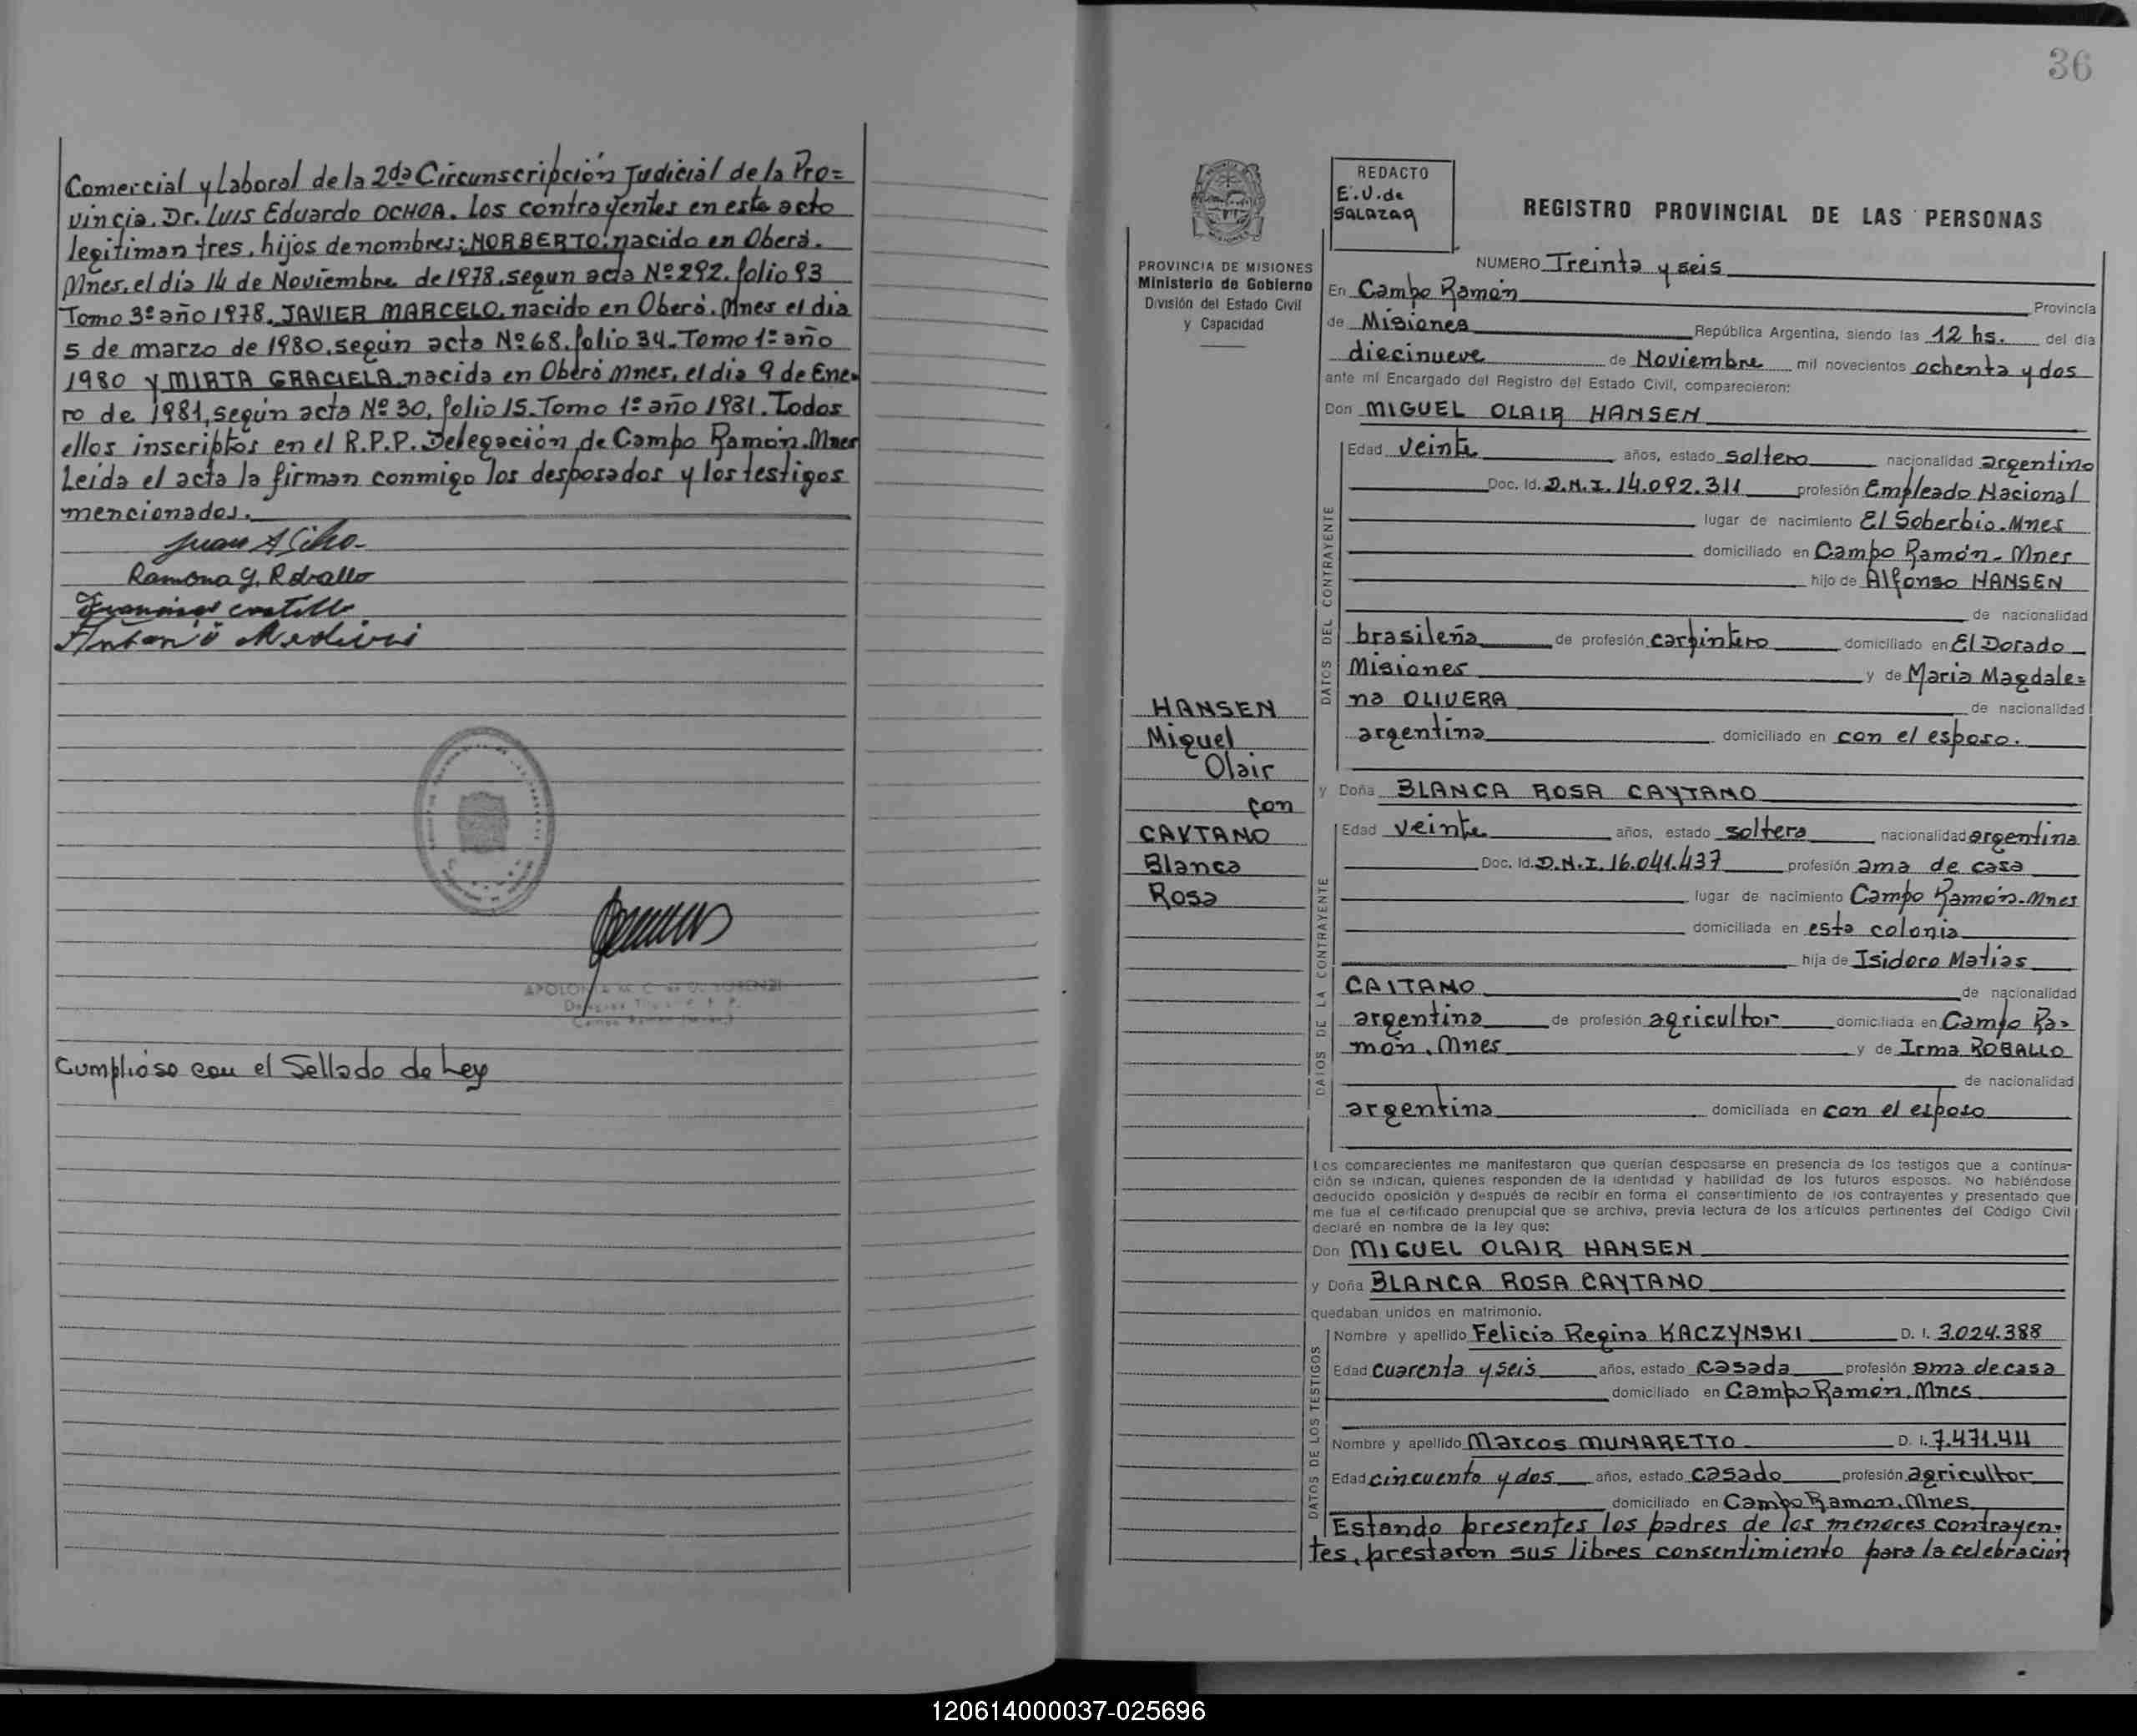 Comercial y Laboral de la 2da Circunscripción Judicial de la Pro=
vincia. Dr. Luis Eduardo OCHOA. Los contrayentes en este acto
legitiman tres, hijos de nombres: NORBERTO: nacido en Oberá.
Mnes, el día 14 de Noviembre de 1978, segun acta Nº 292. folio 93
Tomo 3º año 1978. JAVIER MARCELO, nacido en Oberá. Mnes el dia
5 de marzo de 1980, según acta Nº 68. folio 34. Tomo 1º año
1980 y MIRTA GRACIELA, nacida en Oberá Mnes, el dia 9 de Ene-
ro de 1981, según acta Nº 30, folio 15. Tomo 1º año 1981. Todos
ellos inscriptos en el R.P.P. Delegación de Campo Ramón. Mnes
Leída el acta la firman conmigo los desposados y los testigos
mencionados.
Juan A
Ramona G. Roballo
Castillo
Antonio
Cumplióse con el Sellado de Ley
36
REDACTO
E.U. de
SALAZAR
REGISTRO PROVINCIAL DE LAS PERSONAS
PROVINCIA DE MISIONES
Ministerio de Gobierno
División del Estado Civil
y Capacidad
NUMERO Treinta y seis
En Campo Ramón Provincia
de Misiones República Argentina, siendo las 12 hs. del día
diecinueve de Noviembre mil novecientos ochenta y dos
ante mí Encargado del Registro del Estado Civil, comparecieron:
Don MIGUEL OLAIR HANSEN
DATOS DEL CONTRAYENTE
Edad veinte años, estado soltero nacionalidad argentino
Doc. Id. D.N.I. 14.092.311 profesión Empleado Nacional
lugar de nacimiento El Soberbio. Mnes
domiciliado en Campo Ramón - Mnes
hijo de Alfonso HANSEN
de nacionalidad
brasileña de profesión carpintero domiciliado en El Dorado
Misiones y de Maria Magdale=
na OLIVERA de nacionalidad
argentina domiciliado en con el esposo.
HANSEN
Miguel
Olair
con
CAYTANO
Blanca
Rosa
y Doña BLANCA ROSA CAYTANO
DATOS DE LA CONTRAYENTE
Edad veinte años, estado soltera nacionalidad argentina
Doc. Id. D.N.I. 16.041.437 profesión ama de casa
lugar de nacimiento Campo Ramón - Mnes
domiciliada en esta colonia
hija de Isidoro Matias
CAITANO de nacionalidad
argentina de profesión agricultor domiciliada en Campo Ra=
món. Mnes y de Irma ROBALLO
de nacionalidad
argentina domiciliada en con el esposo
Los comparecientes me manifestaron que querían desposarse en presencia de los testigos que a continua-
ción se indican, quienes responden de la identidad y habilidad de los futuros esposos. No habiéndose
deducido oposición y después de recibir en forma el consentimiento de los contrayentes y presentado que
me fue el certificado prenupcial que se archiva, previa lectura de los artículos pertinentes del Código Civil
declaré en nombre de la ley que:
Don MIGUEL OLAIR HANSEN
y Doña BLANCA ROSA CAYTANO
quedaban unidos en matrimonio.
DATOS DE LOS TESTIGOS
Nombre y apellido Felicia Regina KACZYNSKI D. I. 3.024.388
Edad cuarenta y seis años, estado casada profesión ama de casa
domiciliado en Campo Ramón. Mnes
Nombre y apellido Marcos MUNARETTO D. I. 7.471.411
Edad cincuenta y dos años, estado casado profesión agricultor
domiciliado en Campo Ramon. Mnes
Estando presentes los padres de los menores contrayen-
tes, prestaron sus libres consentimiento para la celebración
120614000037-025696